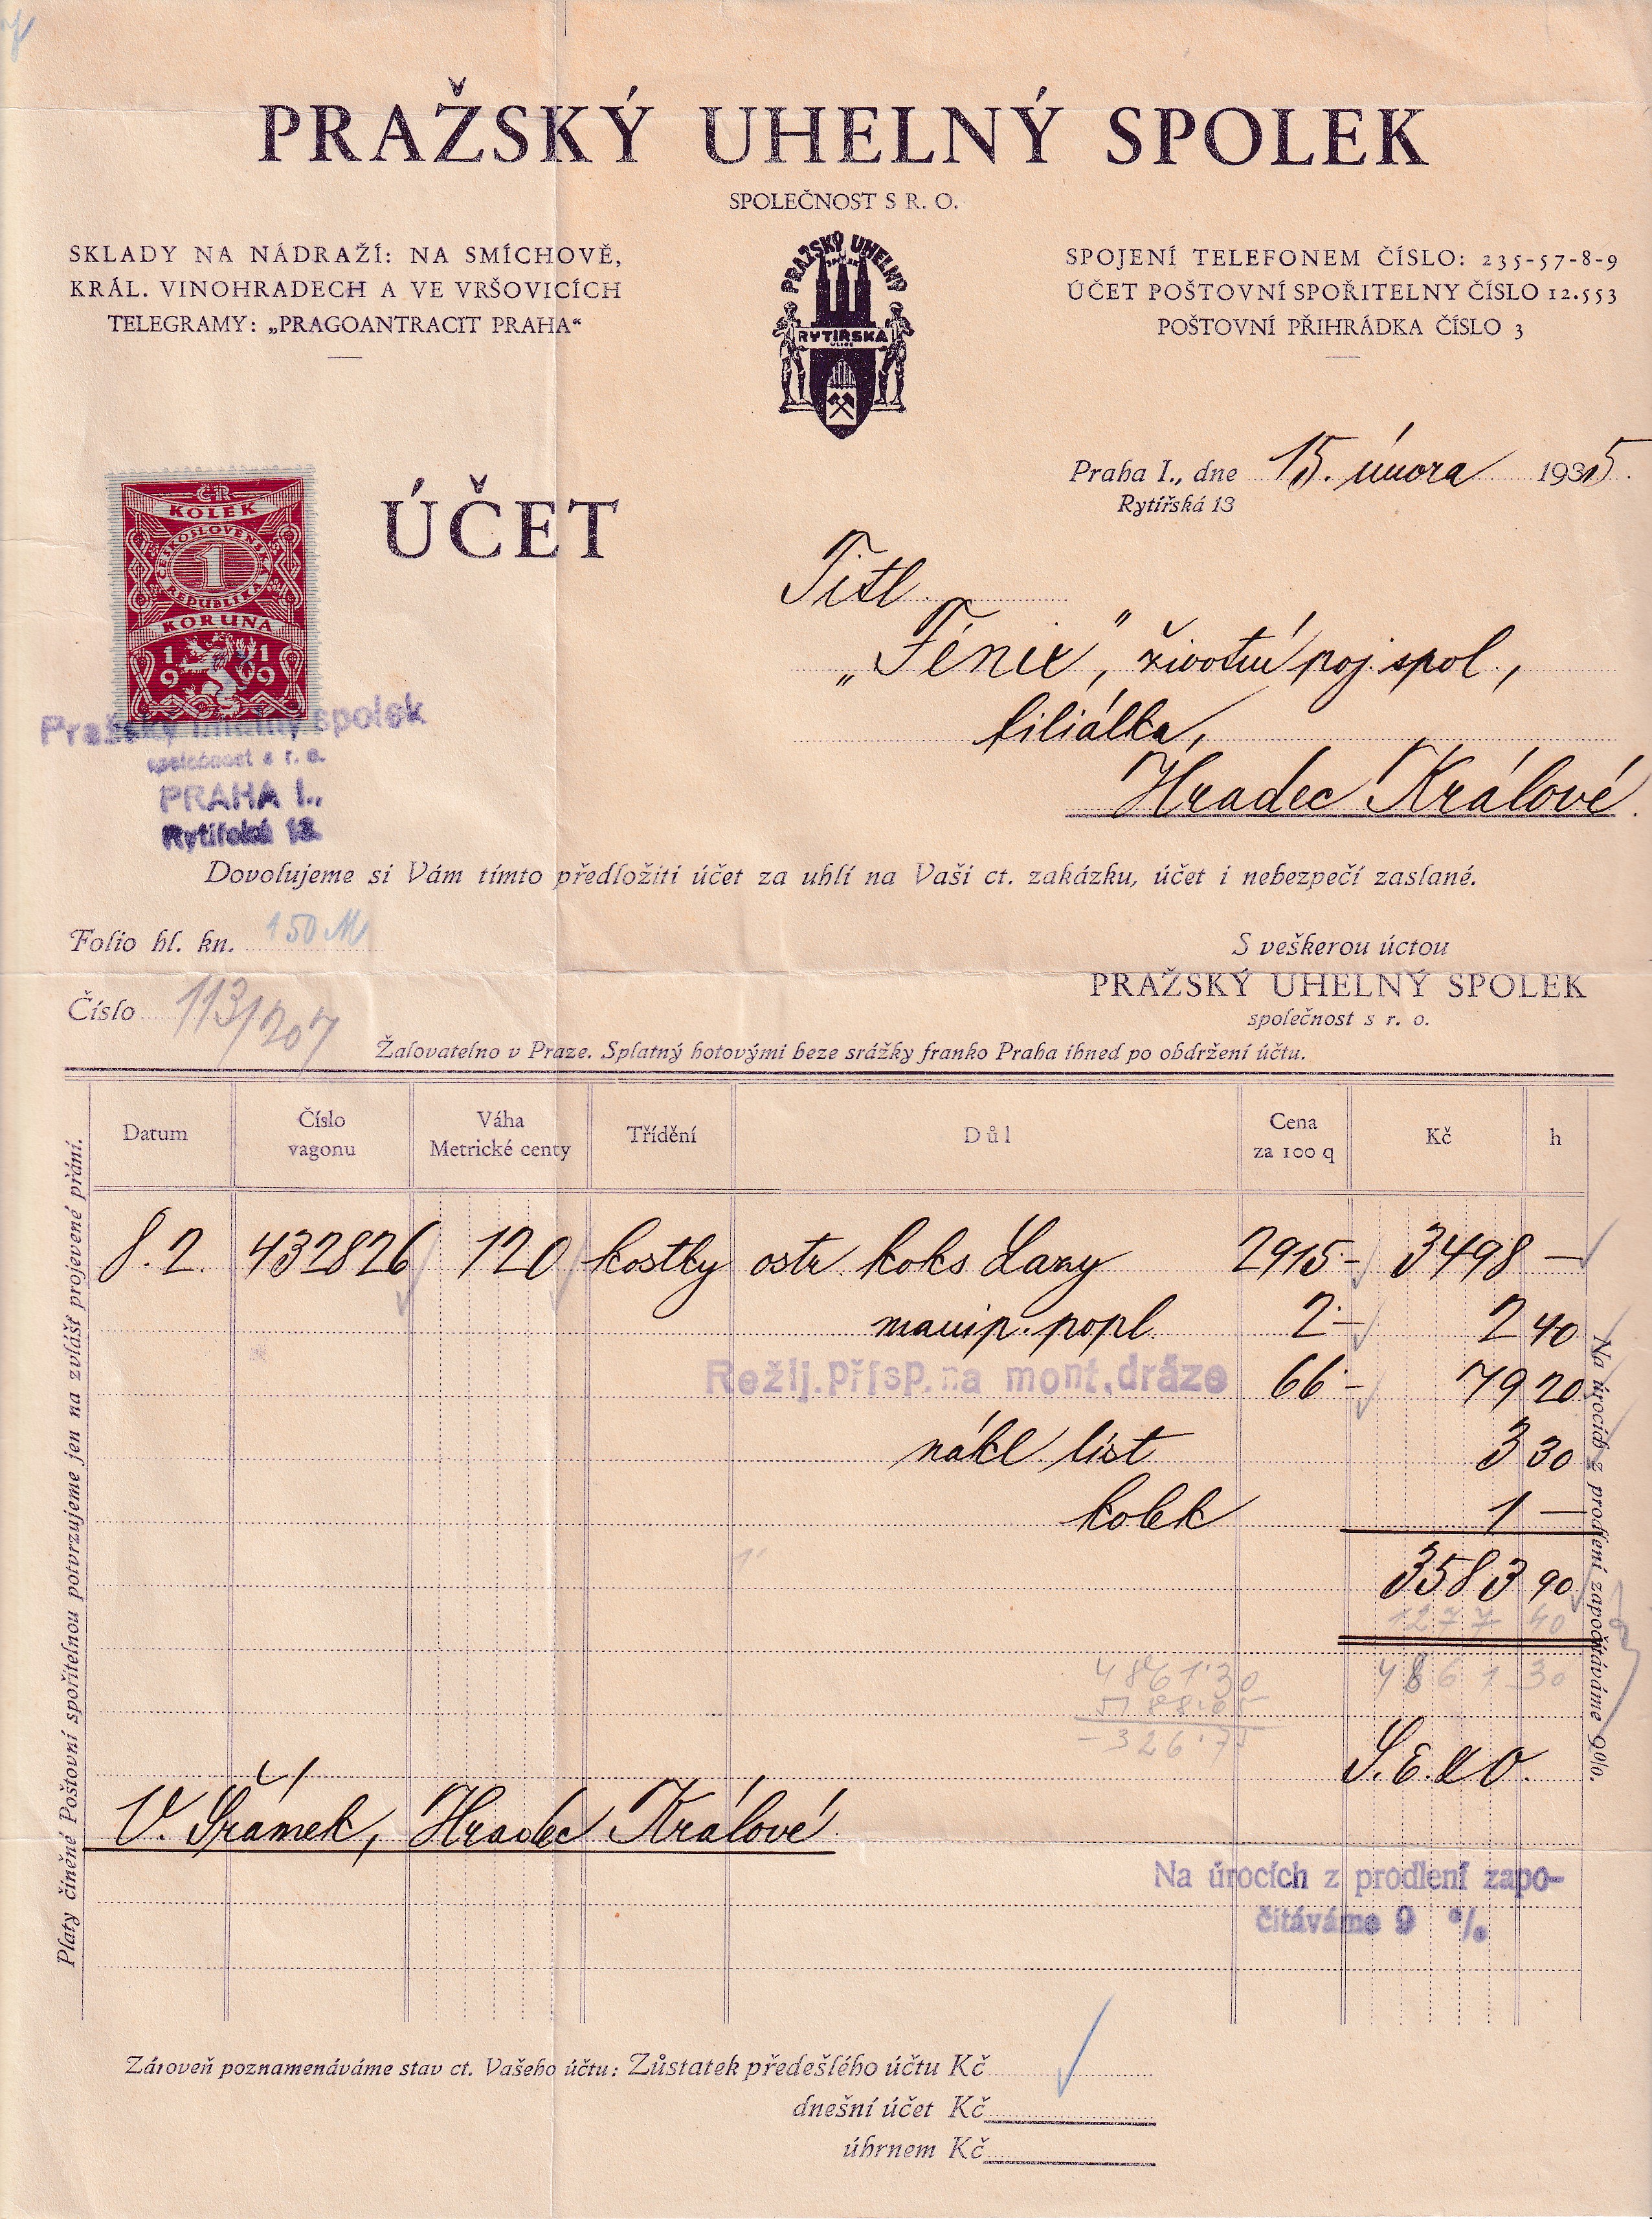 PRAŽSKÝ UHELNÝ SPOLEK
SPOLEČNOST S R. O.
SKLADY NA NÁDRAŽÍ: NA SMÍCHOVĚ,
KRÁL. VINOHRADECH A VE VRŠOVICÍCH
TELEGRAMY: „PRAGOANTRACIT PRAHA“
PRAŽSKÝ UHELNÝ
SPOLEK
RYTÍŘSKÁ
ULICE
SPOJENÍ TELEFONEM ČÍSLO: 235-57-8-9
ÚČET POŠTOVNÍ SPOŘITELNY ČÍSLO 12.553
POŠTOVNÍ PŘIHRÁDKA ČÍSLO 3
Praha I., dne 15. února 1935.
Rytířská 13
ČR
KOLEK
ČESKOSLOVENSKÁ
1
REPUBLIKA
KORUNA
1 1
9 9
ÚČET
Titl.
„Fénix“, životní poj. spol.,
filiálka,
Hradec Králové.
Pražský uhelný spolek
společnost s r. o.
PRAHA I.,
Rytířská 13.
Dovolujeme si Vám tímto předložiti účet za uhlí na Vaši ct. zakázku, účet i nebezpečí zaslané.
Folio hl. kn. 150 M
S veškerou úctou
PRAŽSKÝ UHELNÝ SPOLEK
společnost s r. o.
Číslo 113/207
Žalovatelno v Praze. Splatný hotovými beze srážky franko Praha ihned po obdržení účtu.
Datum Číslo vagonu Váha Metrické centy Třídění Důl Cena za 100 q Kč h
8.2. 432826 120 kostky ostr. koks Lazy 2915.- 3498 —
manip. popl. 2.- 2 40
Režij. přísp. na mont. dráze 66.- 79 20
nákl. list 3 30
kolek 1 —
3583 90
1277 40
4861.30 4861 30
5188.05
-326.75
S. E. & O.
V. Šrámek, Hradec Králové
Na úrocích z prodlení zapo-
čítáváme 9 %
Platy činěné Poštovní spořitelnou potvrzujeme jen na zvlášť projevené přání.
Na úrocích z prodlení započítáváme 9%.
Zároveň poznamenáváme stav ct. Vašeho účtu: Zůstatek předešlého účtu Kč
dnešní účet Kč
úhrnem Kč